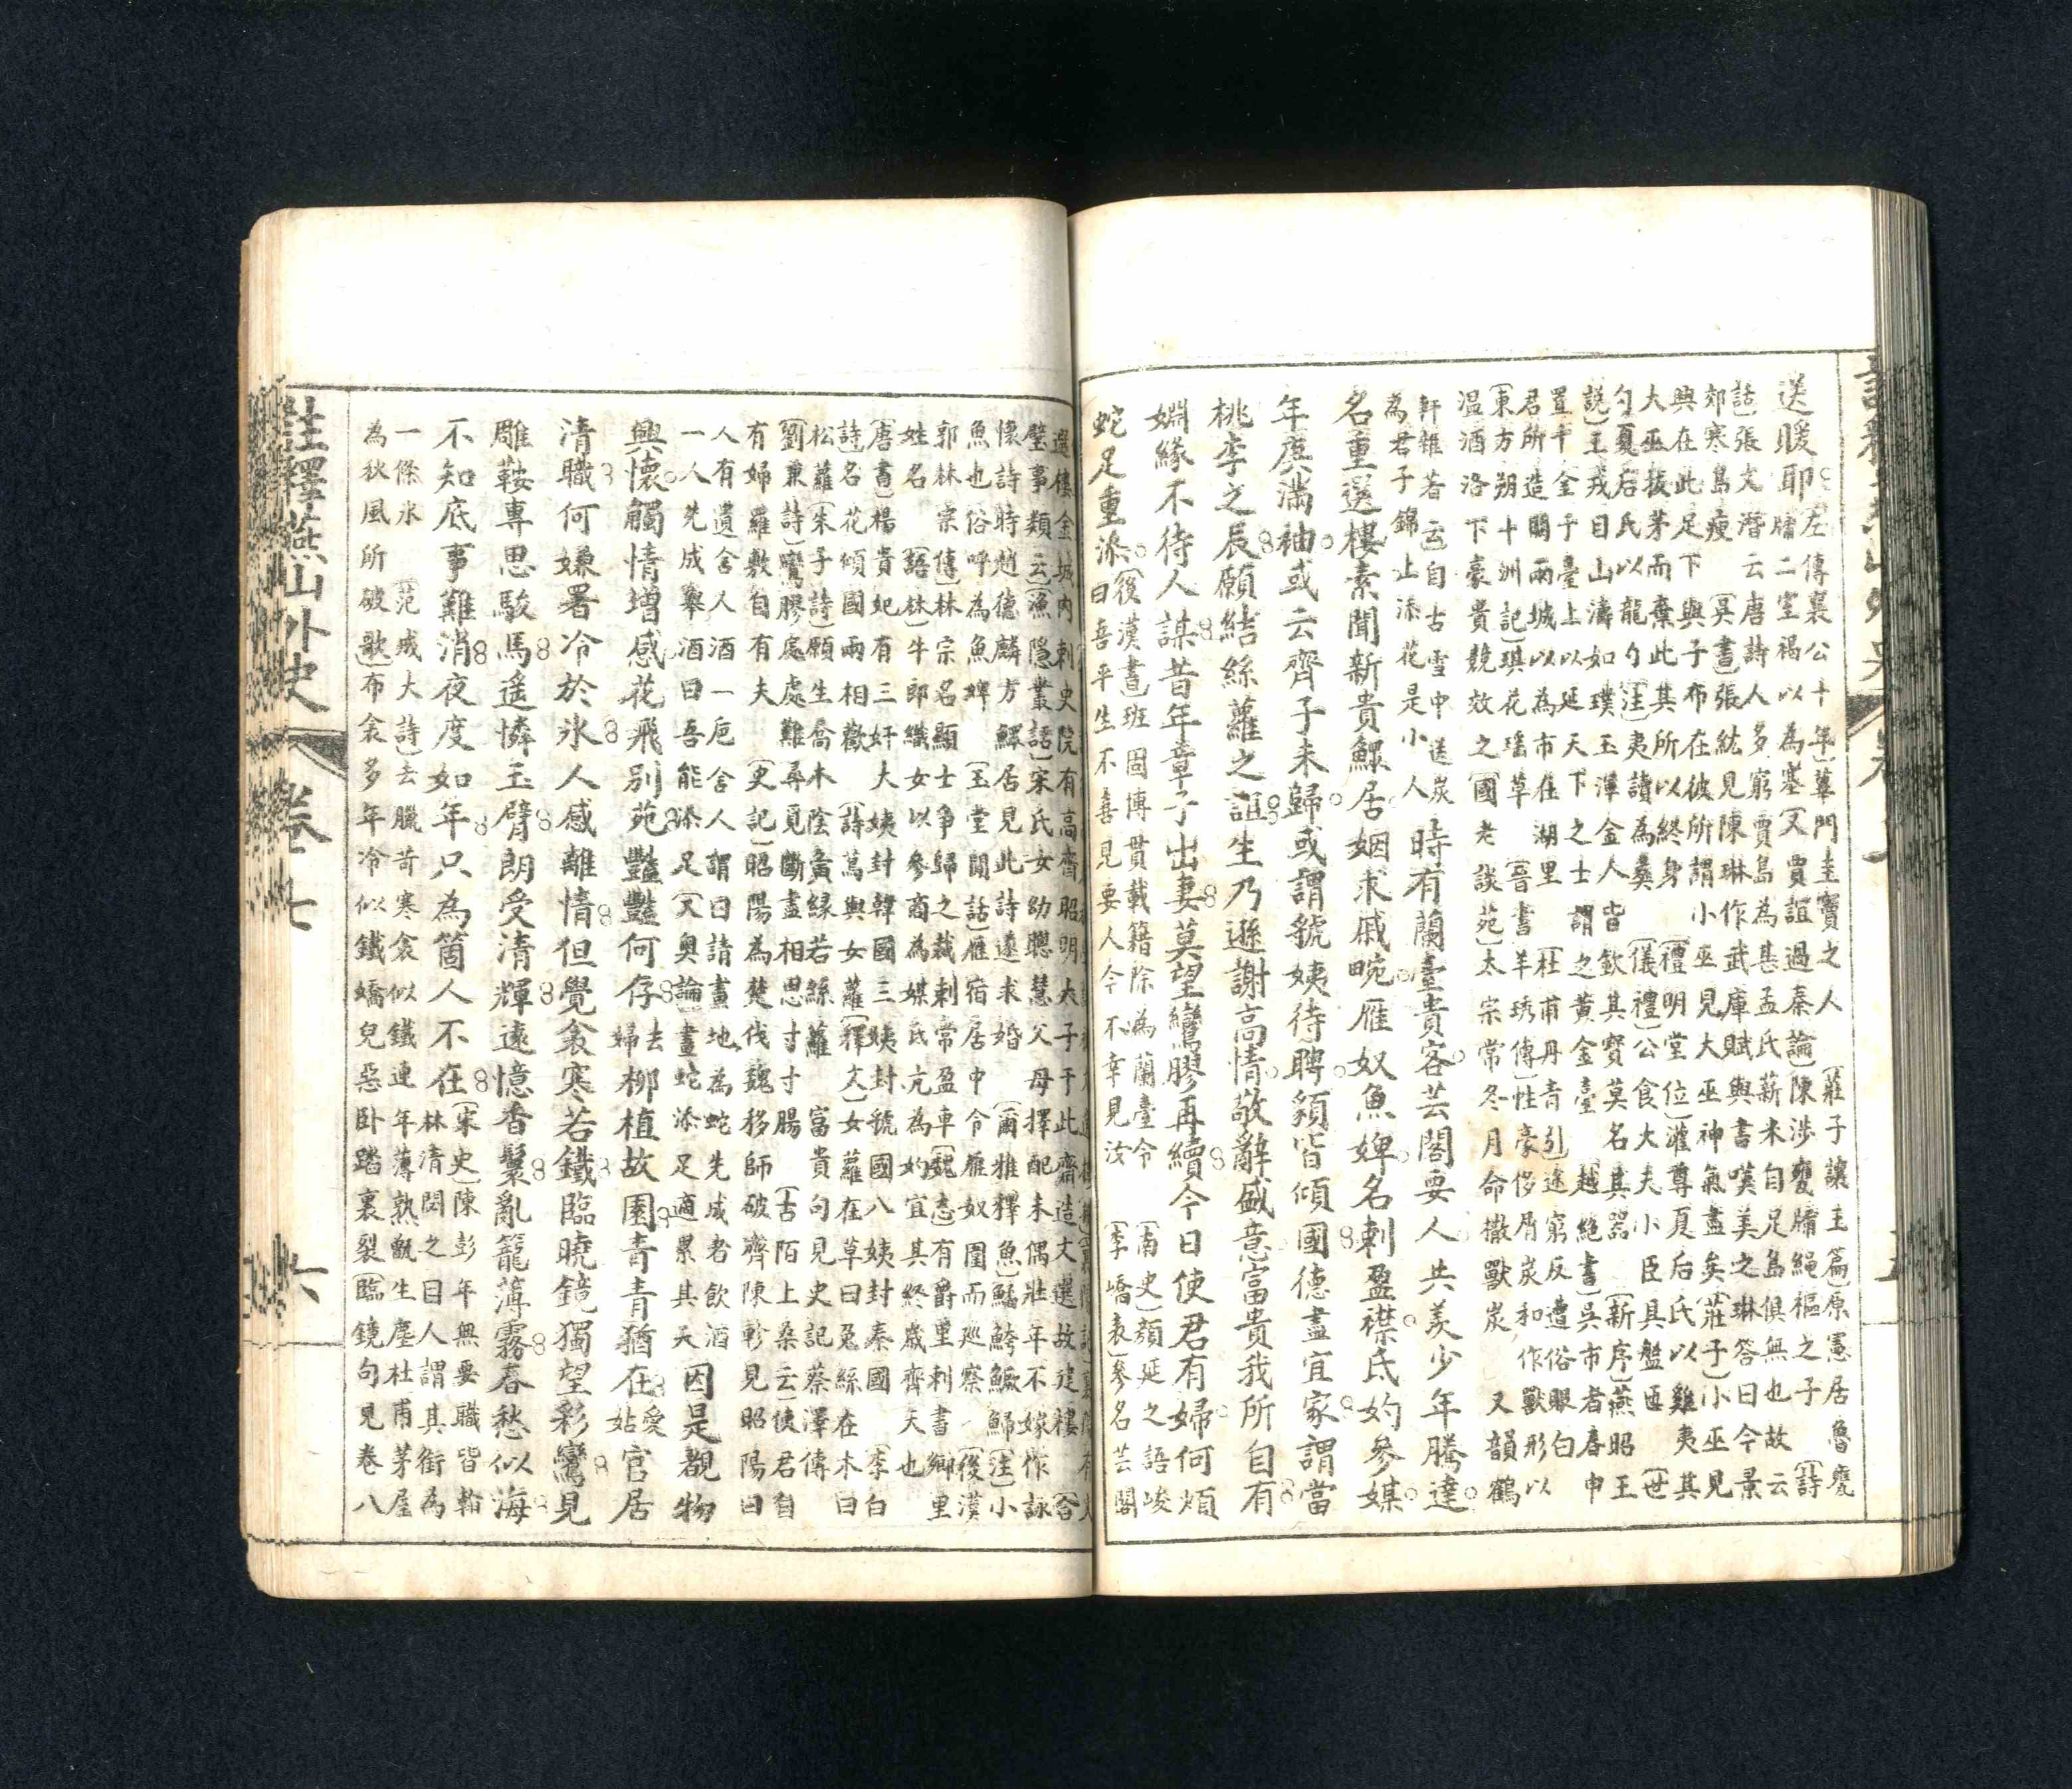 送暖耶
左傳襄公十年篳門圭竇之人(莊子讓王篇)原憲居魯甕
牖二室褐以為塞(又賈誼過秦論)陳涉甕牖繩樞之子(詩
話)張文潛云唐詩人多窮賈島為甚孟氏薪米自足島俱無也故云
郊寒島瘦(吳書)張紘見陳琳作武庫賦與書嘆美之琳答曰今景
興在此足下與子布在彼所謂小巫見大巫神氣盡矣(莊子)小巫見
大巫拔茅而棄此其所以終身(禮明堂位)灌尊夏后氏以雞夷其
勺夏后氏以龍勺(注)夷讀為彝(儀禮)公食大夫小臣具盤匜(世
說)王戎目山濤如璞玉渾金人皆欽其寶莫名其器(新序)燕昭王
置千金于臺上以延天下之士謂之黃金臺(越絕書)吳市者春申
君所造闕兩城以為市在湖里(杜甫丹青引)途窮反遭俗眼白
(東方朔十洲記)琪花瑤草(晉書羊琇傳)性豪侈屑炭和作獸形以
溫酒洛下豪貴競效之(國老談苑)太宗常冬月命撤獸炭又韻鶴
軒雜著云自古雪中送炭
為君子錦上添花是小人
時有蘭臺貴客芸閣要人共羨少年騰達
名重選樓素聞新貴鰥居姻求戚畹雁奴魚婢名刺盈襟氐妁參媒
年庚滿袖或云齊子未歸或謂虢姨待聘額皆傾國德盡宜家謂當
桃李之辰願結絲蘿之誼生乃遜謝高情敬辭盛意富貴我所自有
婣緣不待人謀昔年章子出妻莫望鸞膠再續今日使君有婦何煩
蛇足重添
(後漢書)班固博貫載籍除為蘭臺令(南史)顏延之語峻
曰喜平生不喜見要人今不幸見汝(李嶠表)參名芸閣
選樓金城內刺史院有高齊昭明太子于此齋造文選故建樓(含
璧事類)云(漁隱叢話)宋氏女幼聰慧父母擇配未偶壯年不嫁作詠
懷詩時趙德麟方鰥居見此詩遂求婚(爾雅釋魚)鱊鮬鱖鯞(注)小
魚也俗呼為魚婢(玉堂閒話)雁宿居中令雁奴圍而巡察(後漢
郭林宗傳)林宗名顯士爭歸之載刺常盈車(魏志)有爵里刺書鄉里
姓名(語林)牛郎織女以參商為媒氐亢為妁宜其終歲齊天也
(唐書)楊貴妃有三姊大姨封韓國三姨封虢國八姨封秦國(李白
詩)名花傾國兩相歡(詩)蔦與女蘿(釋文)女蘿在草曰兔絲在木曰
松蘿(朱子詩)願生喬木陰夤緣若絲蘿富貴句見史記蔡澤傳
(劉兼詩)鸞膠處處難尋覓斷盡相思寸寸腸(古陌上桑云)使君自
有婦羅敷自有夫(史記)昭陽為楚伐魏移師破齊陳軫見昭陽曰
人有遺舍人酒一卮舍人謂曰請畫地為蛇先成者飲酒
一人先成舉酒曰吾能添足(又奧論)畫蛇添足適累其天
因是覩物
興懷觸情增感花飛別苑豔豔何存去婦柳植故園青青猶在姑愛官居
清職何嫌署冷於氷人感離情但覺衾寒若鐵臨曉鏡獨望彩鸞見
雕鞍專思駿馬遙憐玉臂朗受清輝遠憶香鬟亂籠薄霧春愁似海
不知底事難消夜度如年只為箇人不在
(宋史)陳彭年無要職皆輪
林清閟之目人謂其銜為
一條氷(范成大詩)去臘苦寒衾似鐵連年薄熟甑生塵杜甫茅屋
為秋風所破歌)布衾多年冷似鐵嬌兒惡臥踏裏裂(臨鏡句見卷八
註釋燕山外史 卷七 六